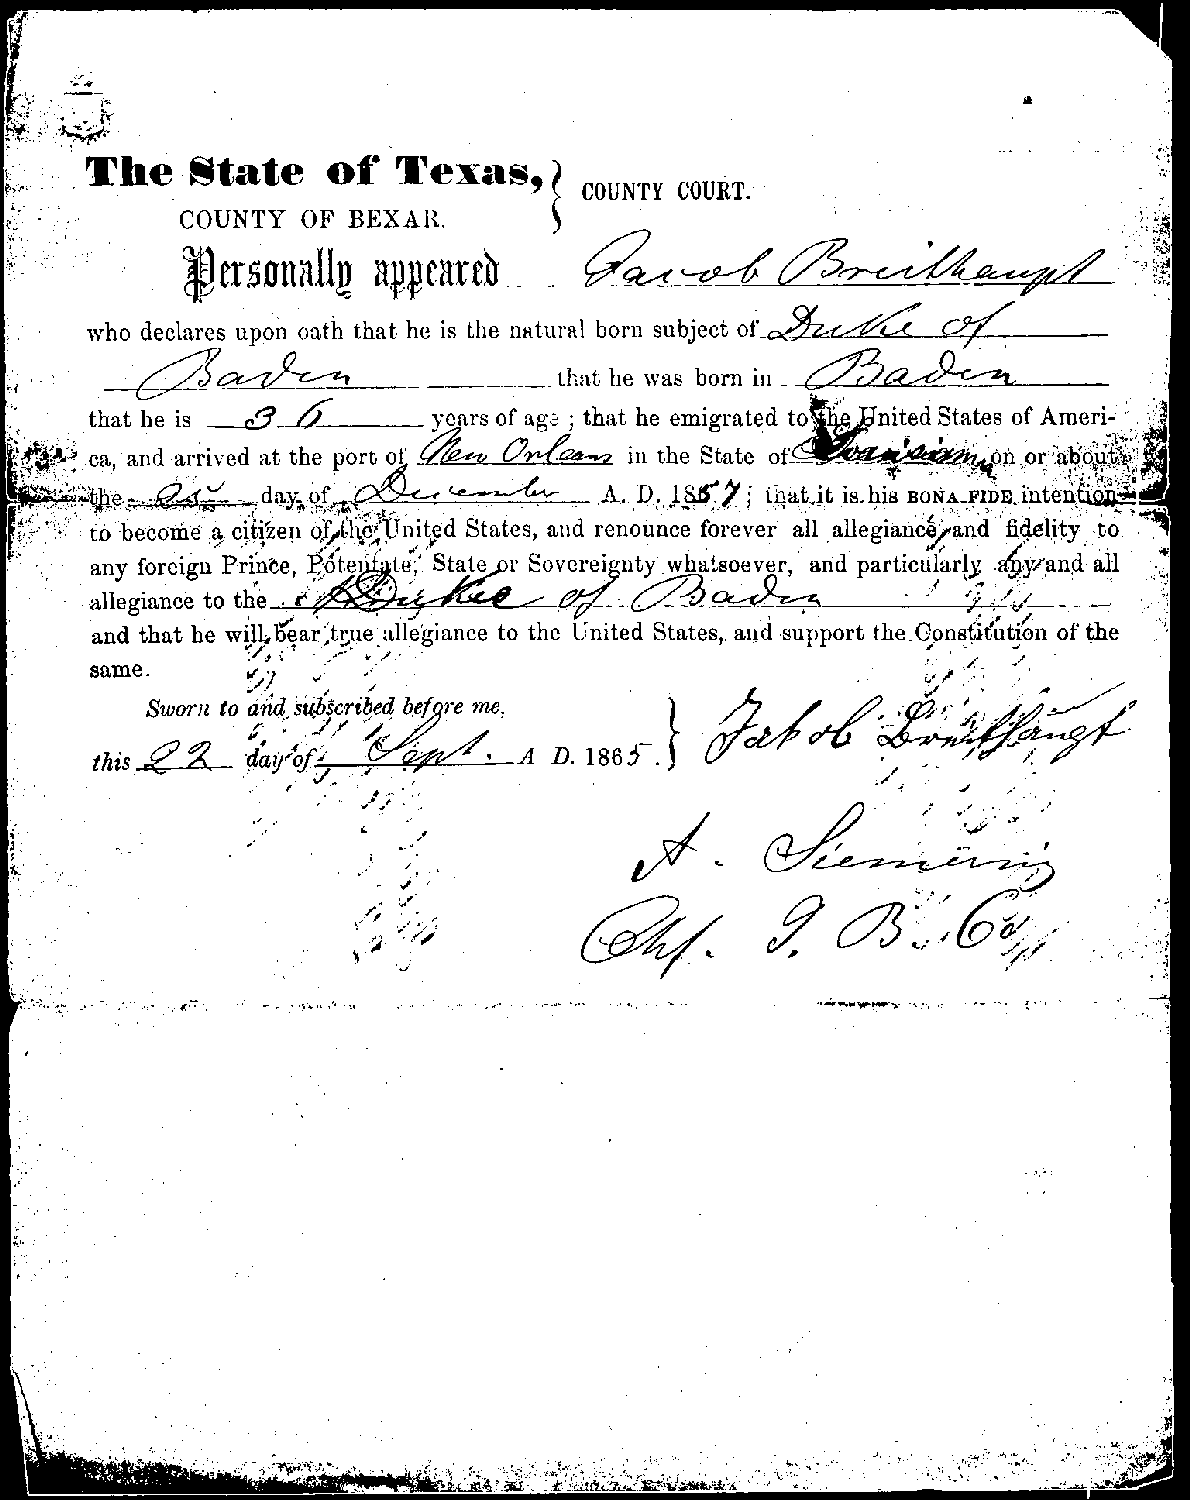 The State of Texas, } COUNTY COURT.
COUNTY OF BEXAR.
Personally appeared Jacob Breithaupt
who declares upon oath that he is the natural born subject of Duke of
Baden that he was born in Baden
that he is 36 years of age ; that he emigrated to the United States of Ameri-
ca, and arrived at the port of New Orleans in the State of Louisiana on or about
the 25 day of December A. D. 1857 ; that it is his BONA FIDE intention
to become a citizen of the United States, and renounce forever all allegiance and fidelity to
any foreign Prince, Potentate, State or Sovereignty whatsoever, and particularly any and all
allegiance to the Duke of Baden
and that he will bear true allegiance to the United States, and support the Constitution of the
same.
Sworn to and subscribed before me,
this 22 day of Sept. A D. 1865. } Jakob Breithaupt
A. Siemering
Chf. J. B. Co